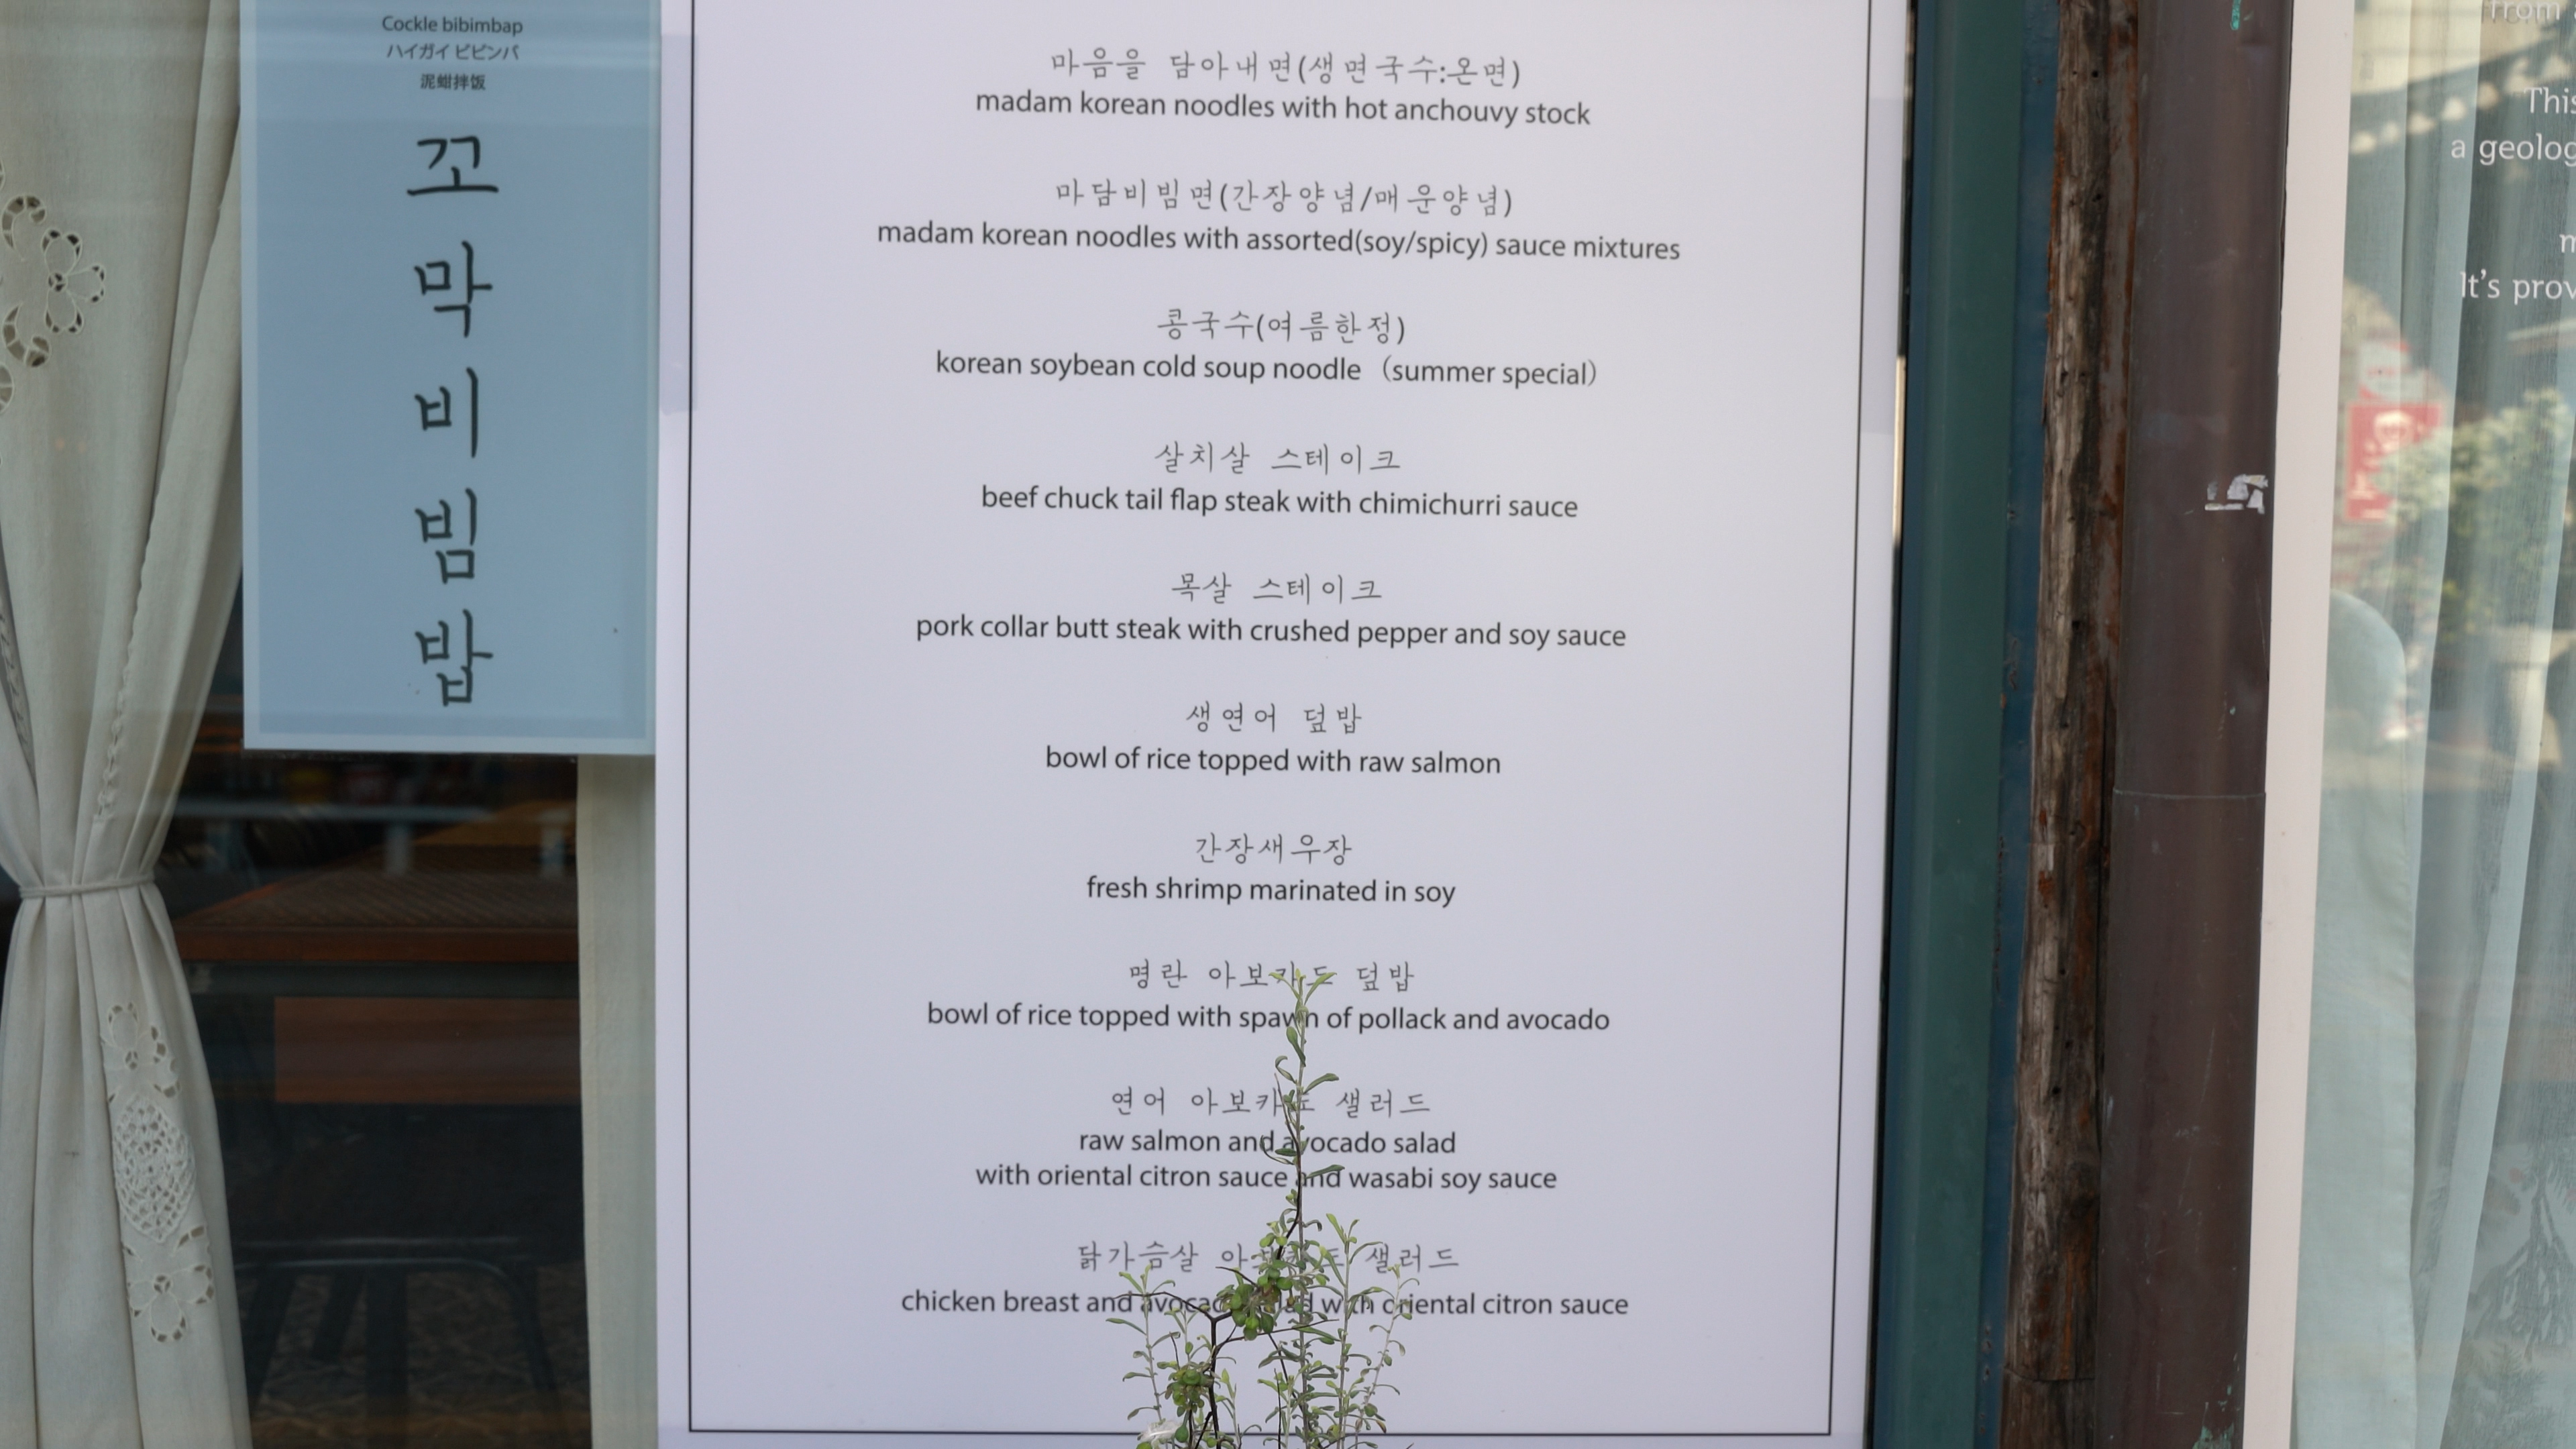 Cockle bibimbap
ハイガイ ビビンバ
泥蚶拌饭
꼬막비빔밥
마음을 담아내면(생면국수:온면)
madam korean noodles with hot anchouvy stock
마담비빔면(간장양념/매운양념)
madam korean noodles with assorted(soy/spicy) sauce mixtures
콩국수(여름한정)
korean soybean cold soup noodle (summer special)
살치살 스테이크
beef chuck tail flap steak with chimichurri sauce
목살 스테이크
pork collar butt steak with crushed pepper and soy sauce
생연어 덮밥
bowl of rice topped with raw salmon
간장새우장
fresh shrimp marinated in soy
명란 아보카도 덮밥
bowl of rice topped with spawn of pollack and avocado
연어 아보카도 샐러드
raw salmon and avocado salad
with oriental citron sauce and wasabi soy sauce
닭가슴살 아보카도 샐러드
chicken breast and avocado salad with oriental citron sauce
from
This
a geolog
It's prov